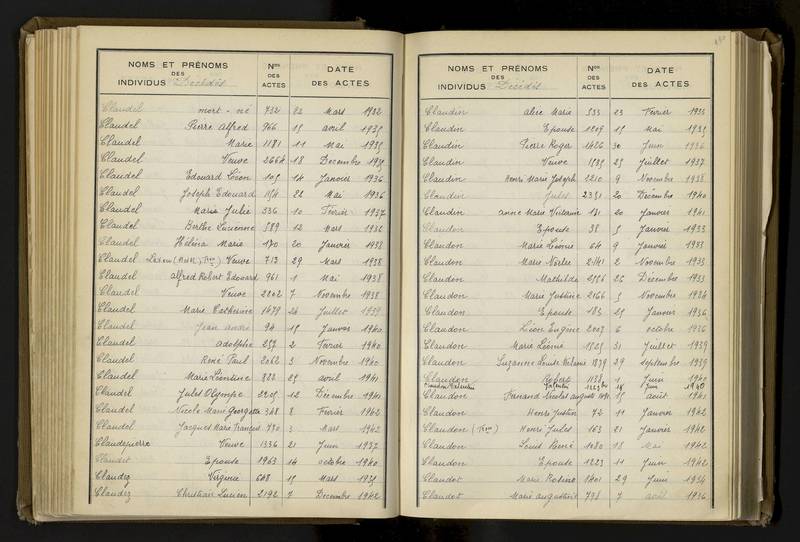 NOMS ET PRÉNOMS
DES
INDIVIDUS Décédés
Nos
DES
ACTES
DATE
DES ACTES
Claudel mort-né 732 22 Mars 1932
Claudel Pierre Alfred 966 15 avril 1935
Claudel Marie 1181 11 Mai 1935
Claudel Veuve 2664 18 Décembre 1935
Claudel Edouard Léon 105 14 Janvier 1936
Claudel Joseph Edouard 22 Mai 1936
Claudel Marie Julie 336 10 Février 1937
Claudel Berthe Lucienne 589 12 Mars 1936
Claudel Hélène Marie 170 20 Janvier 1938
Claudel Veuve 713 29 Mars 1938
Claudel alfred Robert Edouard 961 1 Mai 1938
Claudel Veuve 2202 7 Novembre 1938
Claudel Marie Catherine 1479 24 Juillet 1939
Claudel Jean andré 94 15 Janvier 1940
Claudel adolphe 257 2 Février 1940
Claudel René Paul 2062 3 Novembre 1940
Claudel Marie Léontine 822 25 avril 1941
Claudel Jules Olympe 2205 12 Décembre 1941
Claudel Nicole Marie Georgette 348 8 Février 1942
Claudel Jacques Marie François 790 3 Mars 1942
Claudepierre Veuve 1336 21 Juin 1937
Claudet Epouse 1963 14 octobre 1940
Claudez Virginie 608 15 Mars 1935
Claudez Christian Lucien 2192 7 Décembre 1942
NOMS ET PRÉNOMS
DES
INDIVIDUS Décédés
Nos
DES
ACTES
DATE
DES ACTES
Claudin alice Marie 333 23 Février 1935
Claudin Epouse 1209 15 Mai 1935
Claudin Pierre Roger 1426 30 Juin 1936
Claudin Veuve 1535 25 Juillet 1937
Claudin Henri Marie Joseph 2210 9 Novembre 1938
Claudin Jules 2351 20 Décembre 1940
Claudin anne Marie 131 20 Janvier 1941
Claudon Epouse 38 5 Janvier 1933
Claudon Marie Léonie 64 9 Janvier 1933
Claudon Marie 2141 2 Novembre 1933
Claudon Mathilde 2556 26 Décembre 1933
Claudon Marie Justine 2166 5 Novembre 1934
Claudon Epouse 183 25 Janvier 1936
Claudon Léon Eugène 2007 6 octobre 1936
Claudon Marie Léonie 1525 31 Juillet 1939
Claudon Suzanne Louise 1879 29 septembre 1939
Claudon Robert 1138 1 Juin 1940
Claudon Valentin Valentin 1263 bis 18 Juin 1940
Claudon Fernand Nicolas auguste 1491 15 août 1941
Claudon Henri Justin 72 11 Janvier 1942
Claudon Henri Jules 163 21 Janvier 1942
Claudon Louis René 1080 18 Mai 1942
Claudon Epouse 1223 11 Juin 1942
Claudot Marie 1401 29 Juin 1934
Claudot Marie augustine 778 7 avril 1936